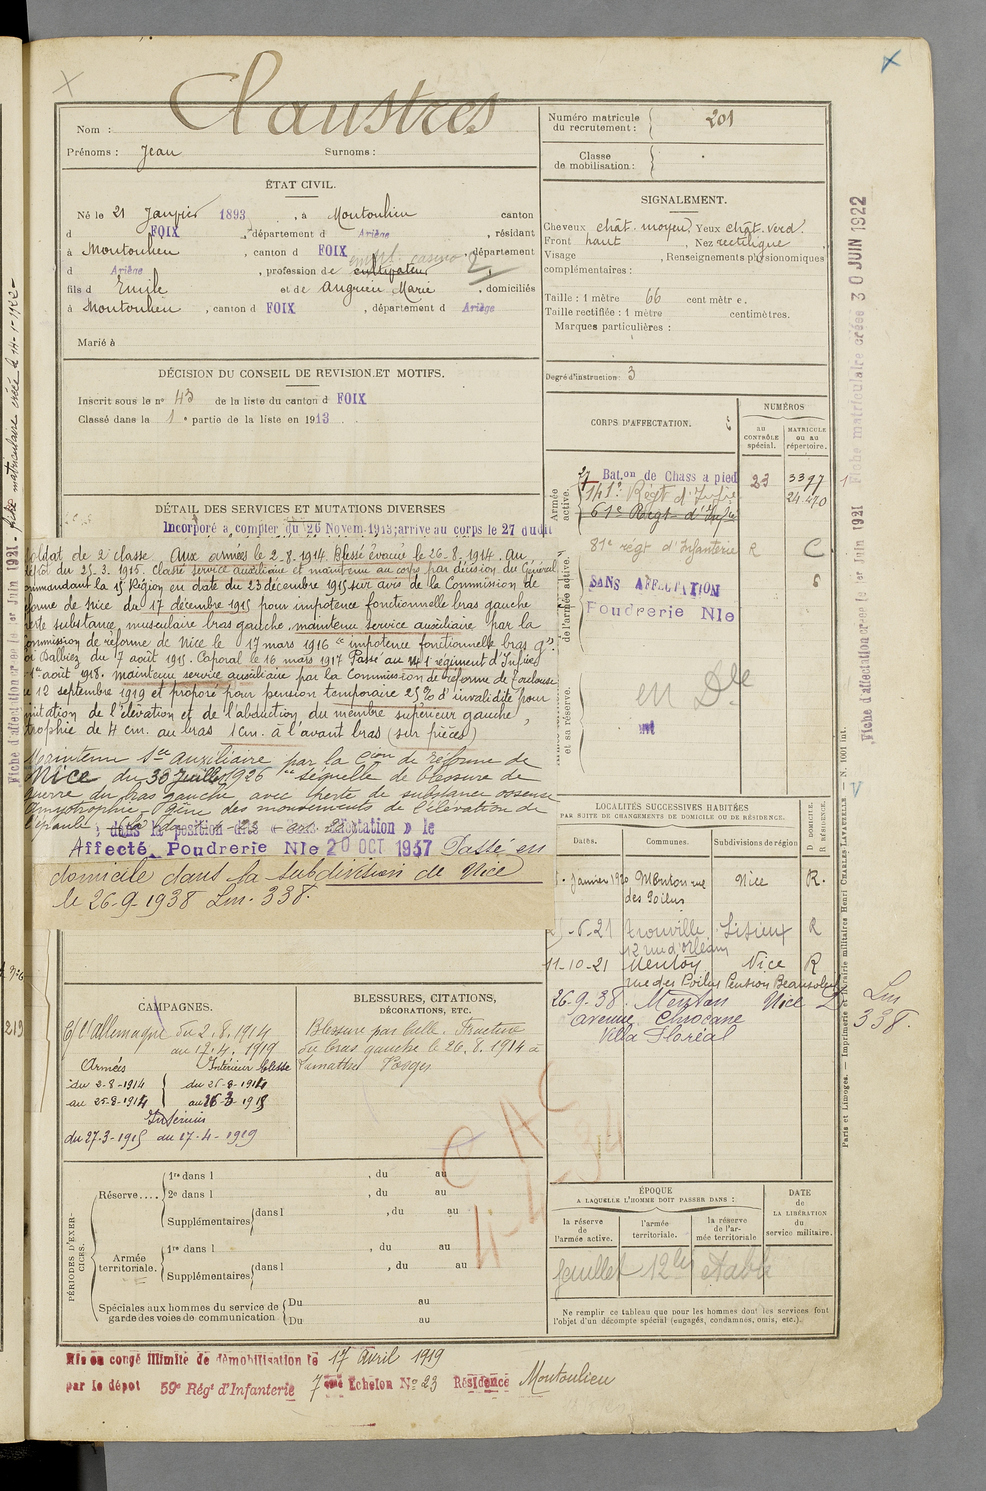 Claustres
Nom :
Prénoms : Jean Surnoms :
Numéro matricule du recrutement : 201
Classe de mobilisation :
ÉTAT CIVIL.
Né le 21 Janvier 1893, à Montoulieu canton
d FOIX, département d Ariège, résidant
à Montoulieu, canton d FOIX, département
d Ariège, profession de cultivateur
empl. casino
fils d Emile et de Anguien Marie, domiciliés
à Montoulieu, canton d FOIX, département d Ariège
Marié à
SIGNALEMENT.
Cheveux chât. moyen Yeux chât. verd.
Front haut, Nez rectiligne,
Visage, Renseignements physionomiques
complémentaires :
Taille : 1 mètre 66 centimètres.
Taille rectifiée : 1 mètre centimètres.
Marques particulières :
Degré d'instruction : 3
DÉCISION DU CONSEIL DE REVISION ET MOTIFS.
Inscrit sous le n° 43 de la liste du canton d FOIX
Classé dans la 1e partie de la liste en 1913
CORPS D'AFFECTATION.
NUMÉROS
AU CONTRÔLE spécial.
MATRICULE ou au répertoire.
Armée active.
27 Bat.on de Chass a pied 23 3397
141e Régt d'Infie 24.470
61e Régt d'Infie
81e régt d'Infanterie R C
SANS AFFECTATION 6
Poudrerie Nle
de l'armée active.
en Dle
et sa réserve.
DÉTAIL DES SERVICES ET MUTATIONS DIVERSES
Incorporé a compter du 26 Novem. 1913; arrivé au corps le 27 dudit
soldat de 2e classe. Aux armées le 2.8.1914. Blessé évacué le 26.8.1914. au
dépôt du 25.3.1915. Classé service auxiliaire et maintenu au corps par décision du Général
commandant la 15 Région en date du 23 décembre 1915 sur avis de la Commission de
réforme de Nice du 17 décembre 1915 pour impotence fonctionnelle bras gauche
perte substance musculaire bras gauche. maintenu service auxiliaire par la
commission de réforme de Nice le 17 mars 1916 "impotence fonctionnelle bras g".
Balbiez du 7 août 1915. Caporal le 16 mars 1917 Passé au 141 régiment d'Infie
1er août 1918. maintenu service auxiliaire par la Commission de réforme de Toulouse
12 septembre 1919 et proposé pour pension temporaire 25% d'invalidité pour
limitation de l'élévation et de l'abduction du membre supérieur gauche,
atrophie de 4 cm. au bras 1 cm. à l'avant bras (sur pièces)
Maintenu Sce auxiliaire par la Cion de réforme de
Nice du 30 Juillet 1926 "séquelle de blessure de
guerre du bras gauche avec perte de substance osseuse
amyotrophie, gêne des mouvements de l'élévation de
l'épaule
dans la position dite « sans affectation » le
Affecté Poudrerie Nle 20 OCT 1937 Passé en
domicile dans la subdivision de Nice
le 26-9-1938 Lm. 338.
LOCALITÉS SUCCESSIVES HABITÉES
PAR SUITE DE CHANGEMENTS DE DOMICILE OU DE RÉSIDENCE.
Dates. Communes. Subdivisions de région
D. DOMICILE. R. RÉSIDENCE.
Janvier 1920 Menton rue des Poilus Nice R.
-6-21 Trouville 12 rue d'Orléans Lisieux R
11-10-21 Menton Nice R
rue des Poilus Pension Beausoleil
26-9-38. Menton Nice D
avenue Cernocane
Villa Floréal
Lm 338.
CAMPAGNES.
C/ l'Allemagne du 2.8.1914
au 17.4.1919
Armées Intérieur blessé
du 2-8-1914 du 26-8-1914
au 25-8-1914 au 26-3-1915
Intérieur
du 27-3-1915 au 17-4-1919
BLESSURES, CITATIONS, DÉCORATIONS, ETC.
Blessure par balle. Fracture
du bras gauche le 26.8.1914 à
Vosges
PÉRIODES D'EXERCICES.
Réserve.... 1re dans l , du au
2e dans l , du au
Supplémentaires dans l , du au
Armée territoriale. 1re dans l , du au
Supplémentaires dans l , du au
Spéciales aux hommes du service de garde des voies de communication. Du au
Du au
ÉPOQUE
A LAQUELLE L'HOMME DOIT PASSER DANS :
la réserve de l'armée active.
l'armée territoriale.
la réserve de l'armée territoriale
DATE de LA LIBÉRATION du service militaire.
feuillet 12bis établi
Ne remplir ce tableau que pour les hommes dont les services font
l'objet d'un décompte spécial (engagés, condamnés, omis, etc.).
Mis en congé illimité de démobilisation le 17 Avril 1919
par le dépot 59e Régt d'Infanterie 7ème Echelon No 23 Résidence Montoulieu
Fiche matriculaire créée 30 JUIN 1922
Fiche d'affectation créée le 1er Juin 1921
Paris et Limoges. — Imprimerie et librairie militaires Henri CHARLES-LAVAUZELLE — N. 1001 int.
Fiche d'affectation créée le 1er Juin 1921 - fiche matriculaire créée le 14-1-1922-
219